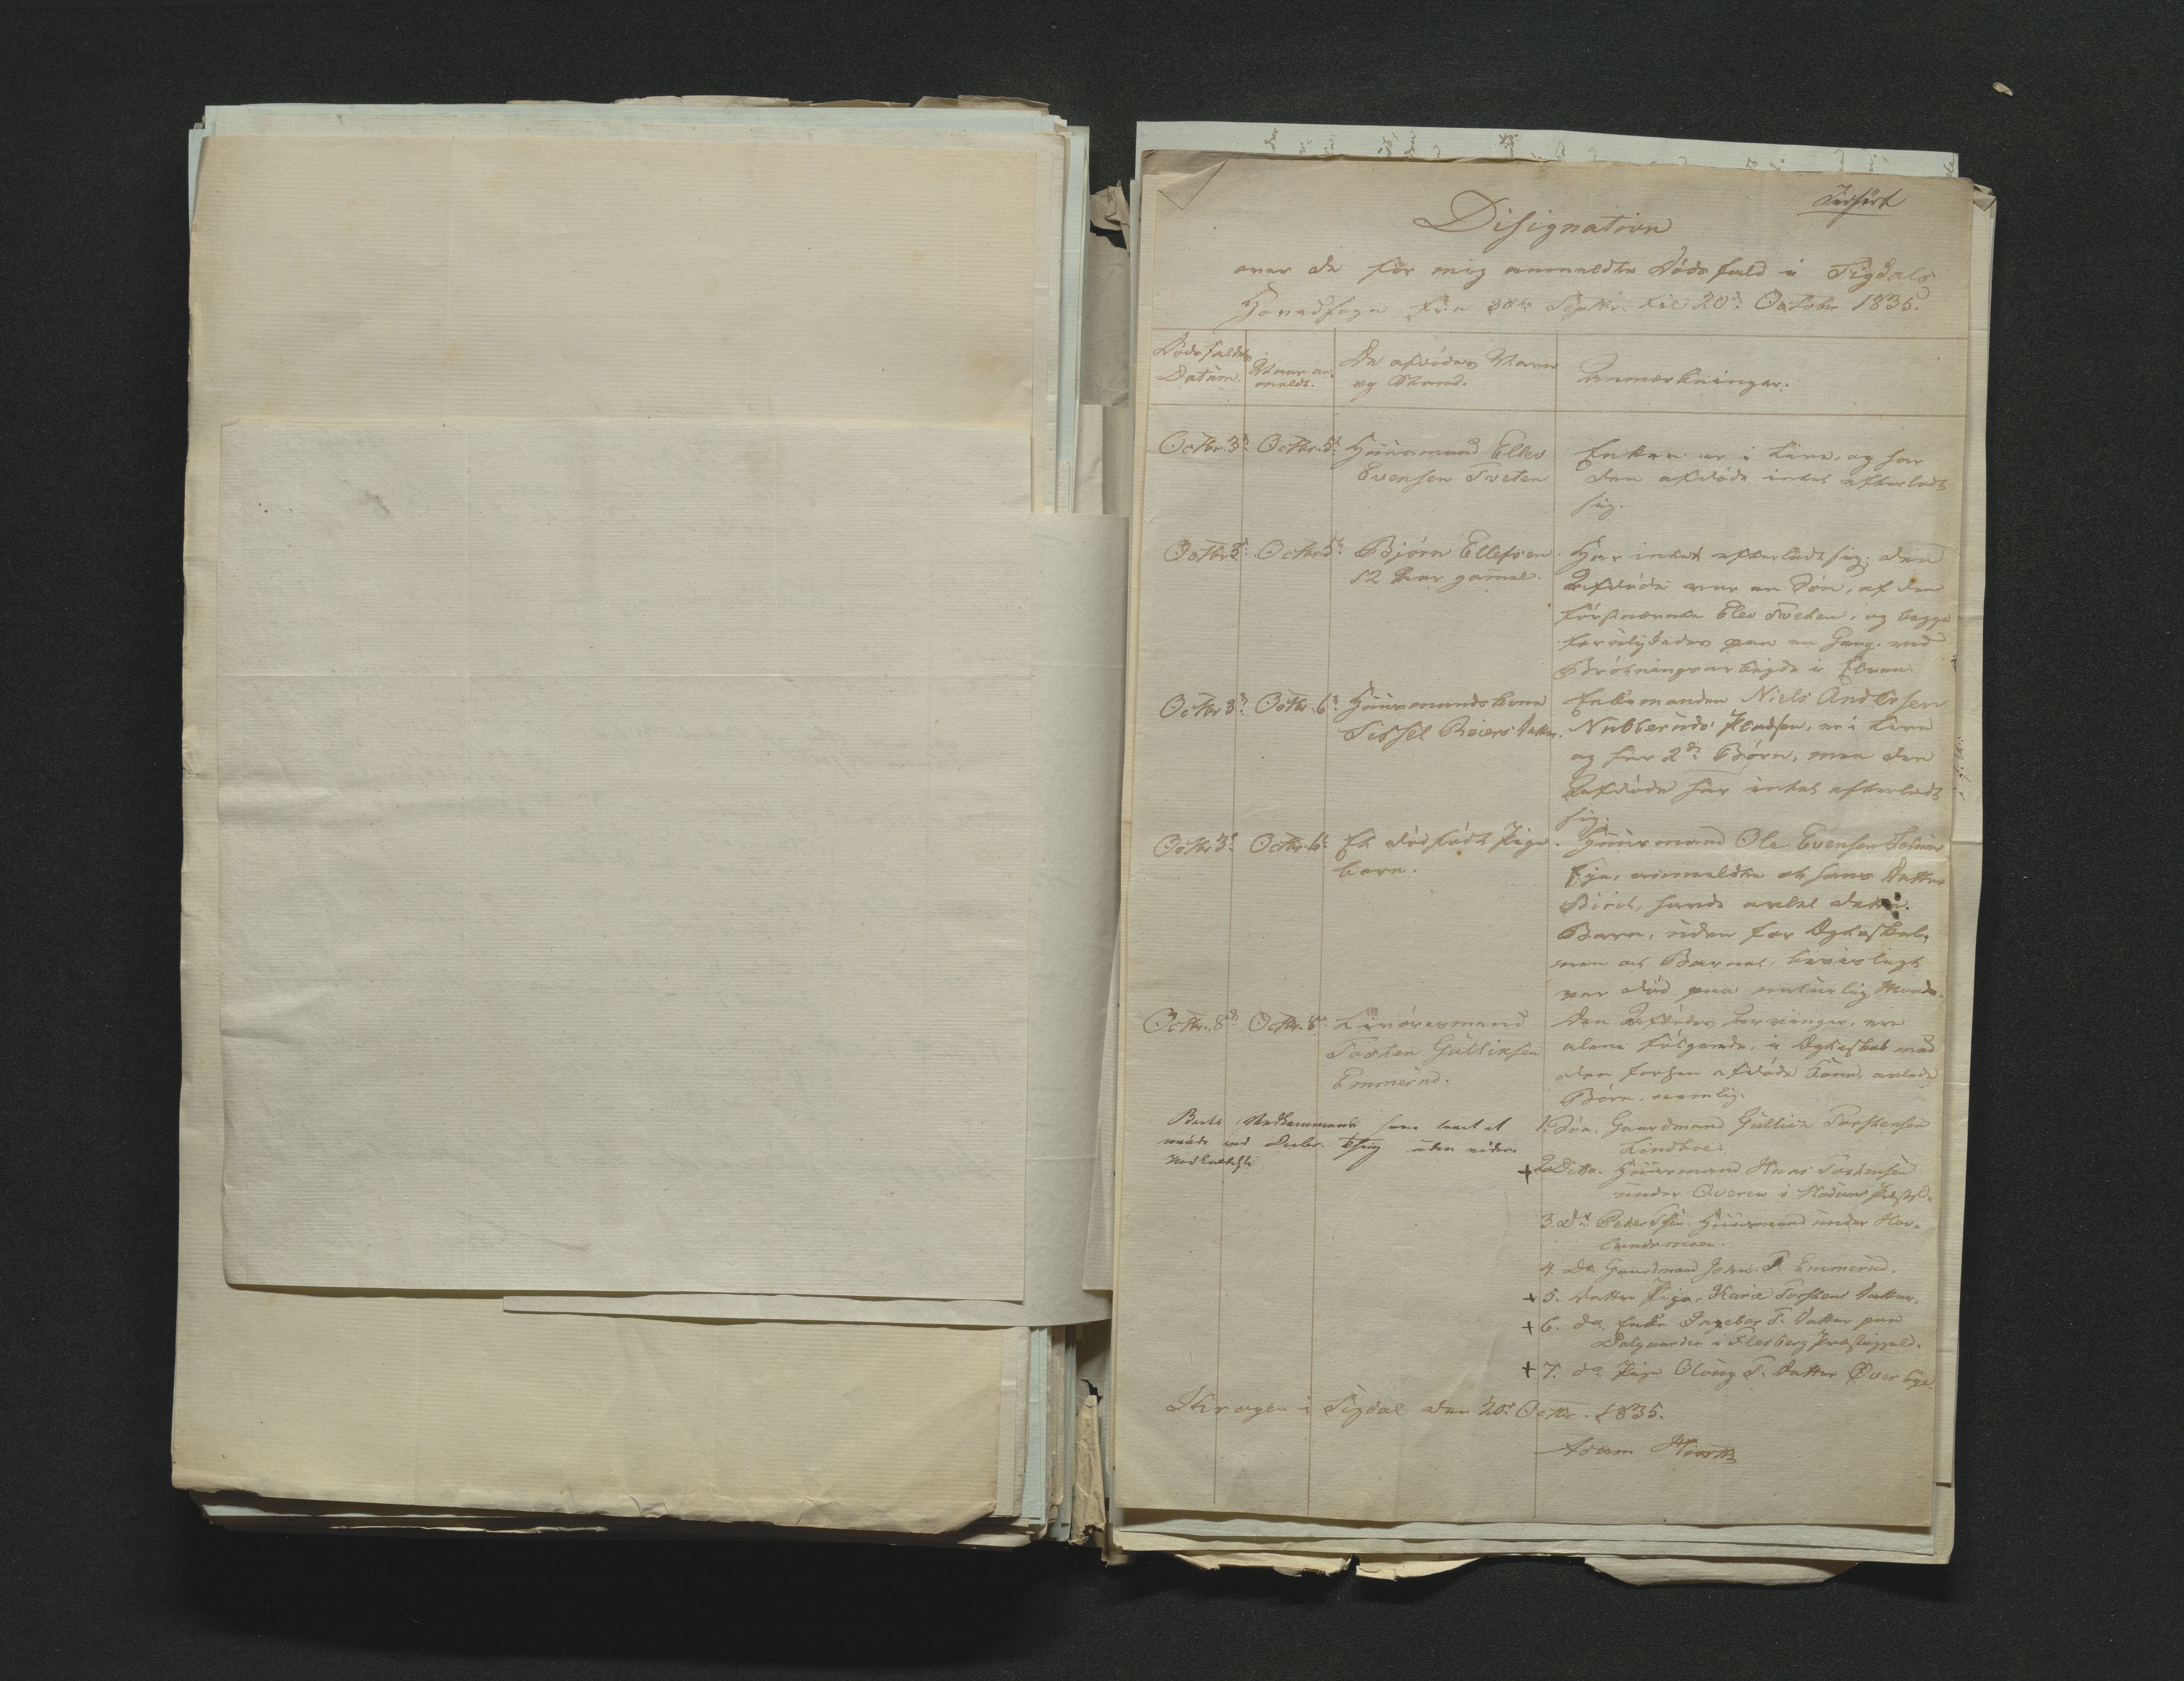 Indført
Designation
over de for mig anmeldte Dødsfald i Sigdals
Hovedsogn fra 20de Septbr. til 20de October 1835.
Dødsfaldets
Datum.
Naar an-
meldt.
De afdødes Navn
og Stand.
Anmærkninger.
Octbr. 3d. Octbr. 5t. Huusmand Ellev
Evensen Tveten
Enken er i Live, og har
den afdøde intet efterladt
sig.
Octbr. 3d. Octbr. 5t. Bjørn Ellefsen
12 Aar gammel.
Har intet efterladt sig; den
Afdøde var en Søn, af den
førstnævnte Elev Tveten, og begge
forulykkedes paa en Gang, ved
Brøtningsarbeide i Elven.
Octbr. 3d. Octbr. 6t. Huusmandskone
Sissel Reiers Datter.
Enkemanden Niels Andersen
Nubberuds Pladsen, er i Live
og har 2de Børn, men den
Afdøde har intet efterladt
sig.
Octbr. 3d. Octbr. 6t. Et dødfødt Pige
barn.
Huusmand Ole Evensen
anmeldte at hans Datter
Birit, havde avlet dette
Barn, uden for Ægteskab,
men at Barnet, beviisligt
var død paa naturlig Maade.
Octbr. 8d. Octbr. 8d. Livøresmand
Tosten Gulliksen
Emmerud.
Den Afdødes Arvinger, ere
alene følgende, i Ægteskab med
den forhen afdøde Kone, avlede
Børn, nemlig.
1. Søn, Gaardmand Gullick Torstensen
Lindboe.
+ 2. Ditto. Huusmand Hans Tostensen
under Overen i Modums Præstgd.
3. do. Peder Tsen. Huusmand under Hov-
landsmoen.
4. do. Gaardmand John T. Emmerud.
+ 5. Datter Pige, Karie Torstens Datter.
+ 6. do. Enke Ingebor T. Datter paa
Dalgaarden i Flesberg Præstegjeld.
+ 7. do. Pige Olöug T. Datter Øverbye.
møde ved uden videre
Kragen i Sigdal den 20de Octbr. 1835.
Adam Hiorth